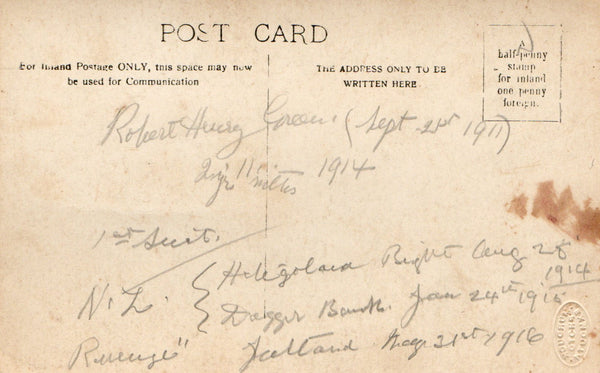 POST CARD
For Inland Postage ONLY, this space may now
be used for Communication
THE ADDRESS ONLY TO BE
WRITTEN HERE
A
half-penny
stamp
for inland
one penny
foreign.
Robert Henry Green. (Sept 21st 1911)
2 yr 11 mths 1914
1st Suit.
Heligoland Bight Aug 28
1914
N.Z. Dogger Bank. Jan 24th 1915
Revenge" Jutland May 31st 1916